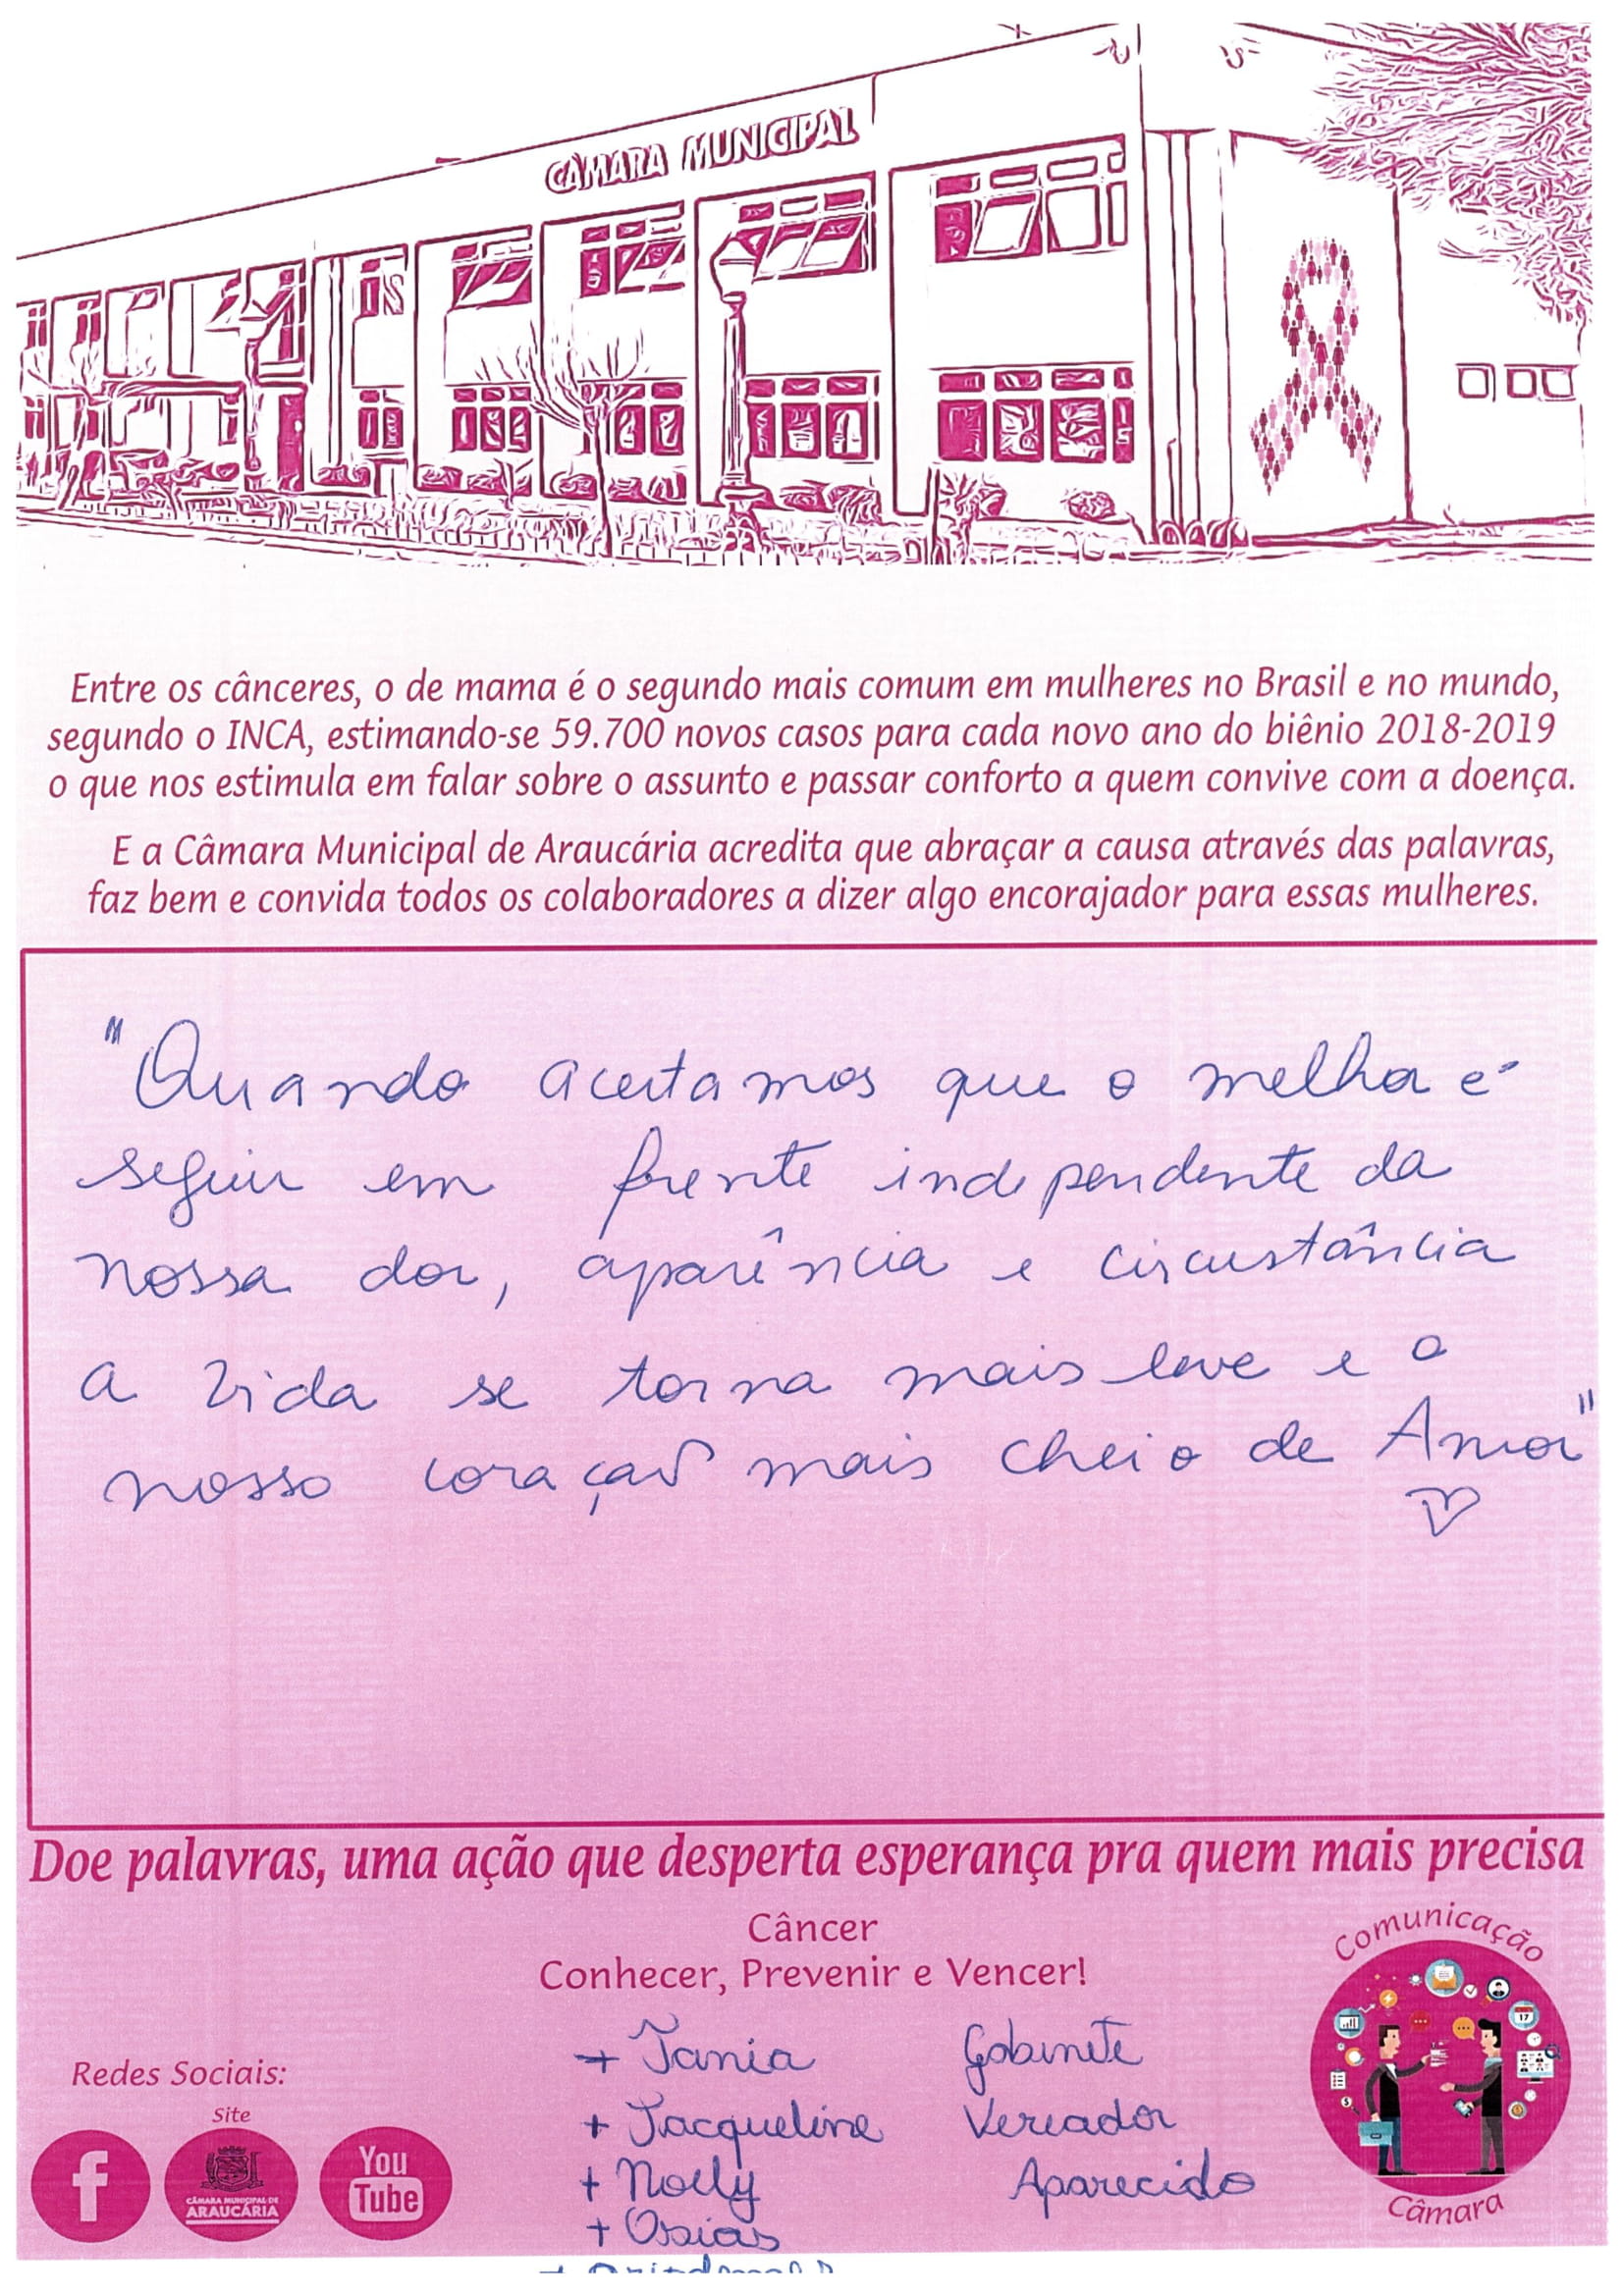 CÂMARA MUNICIPAL
Entre os cânceres, o de mama é o segundo mais comum em mulheres no Brasil e no mundo,
segundo o INCA, estimando-se 59.700 novos casos para cada novo ano do biênio 2018-2019
o que nos estimula em falar sobre o assunto e passar conforto a quem convive com a doença.
E a Câmara Municipal de Araucária acredita que abraçar a causa através das palavras,
faz bem e convida todos os colaboradores a dizer algo encorajador para essas mulheres.
"Quando aceitamos que o melhor é
seguir em frente independente da
nossa dor, aparência e circustância
a vida se torna mais leve e o
nosso coração mais cheio de Amor"
Doe palavras, uma ação que desperta esperança pra quem mais precisa
Câncer
Conhecer, Prevenir e Vencer!
Comunicação
17
Câmara
+ Tania Gabinete
+ Jacqueline Vereador
+ Nolly Aparecido
+ Osias
Redes Sociais:
Site
f
CÂMARA MUNICIPAL DE
ARAUCÁRIA
You
Tube